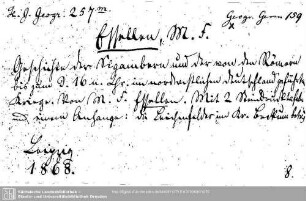 H. G. Geogr. 257 m.
Geogr. Germ 159
Essellen, M. F.
Geschichte der Sigambern und der von den Römern
bis zum J. 16 n. Chr. im nordwestlichen Deutschland geführten
Kriege. Von M. F. Essellen. Mit 2 Steindrucktafeln
Anhange: die Leichenfelder im Kr. Beckum
Leipzig
1868.
8.
Sächsische Landesbibliothek -
Staats- und Universitätsbibliothek Dresden